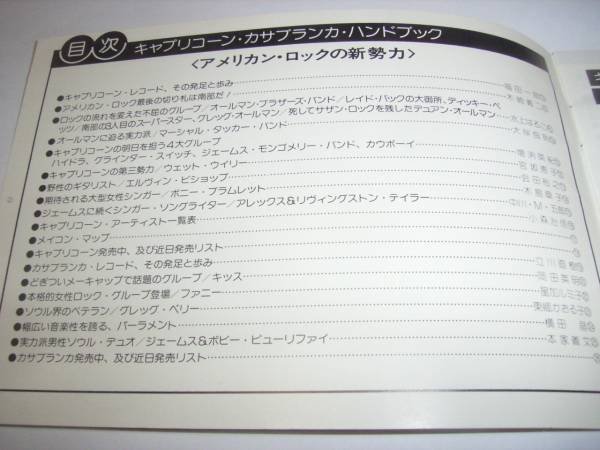 目次 キャプリコーン・カサブランカ・ハンドブック
〈アメリカン・ロックの新勢力〉
●キャプリコーン・レコード、その発足と歩み
●アメリカン・ロック最後の切り札は南部だ!
●ロックの流れを変えた不屈のグループ/オールマン・ブラザーズ・バンド/レイド・バックの大御所、ディッキー・ベ
ッツ/南部の3人目のスーパースター、グレッグ・オールマン/死してサザン・ロックを残したデュアン・オールマン 水上はるこ
●オールマンに迫る実力派/マーシャル・タッカー・バンド
●キャプリコーンの明日を担う4大グループ
ハイドラ、グラインダー・スイッチ、ジェームス・モンゴメリー・バンド、カウボーイ
●キャプリコーンの第三勢力/ウェット・ウイリー
●野性のギタリスト/エルヴィン・ビショップ
●期待される大型女性シンガー/ボニー・ブラムレット
●ジェームスに続くシンガー・ソングライター/アレックス&リヴィングストン・テイラー
●キャプリコーン・アーティスト一覧表
●メイコン・マップ
●キャプリコーン発売中、及び近日発売リスト
●カサブランカ・レコード、その発足と歩み 立川直樹
●どぎついメーキャップで話題のグループ/キッス 岡田英明
●本格的女性ロック・グループ登場/ファニー 星加ルミ子
●ソウル界のベテラン/グレッグ・ペリー 東郷かおる子
●幅広い音楽性を誇る、パーラメント
●実力派男性ソウル・デュオ/ジェームス&ボビー・ピューリファイ
●カサブランカ発売中、及び近日発売リスト